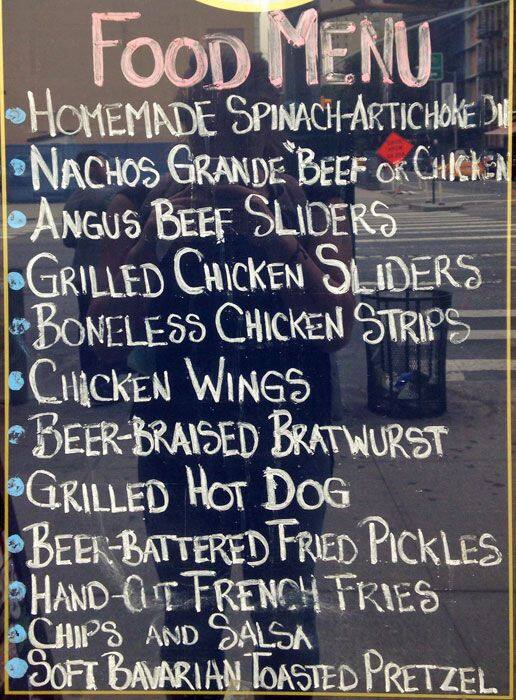 FOOD MENU
HOMEMADE SPINACH-ARTICHOKE DIP
NACHOS GRANDE "BEEF OR CHICKEN
ANGUS BEEF SLIDERS
GRILLED CHICKEN SLIDERS
BONELESS CHICKEN STRIPS
CHICKEN WINGS
BEER-BRAISED BRATWURST
GRILLED HOT DOG
BEER-BATTERED FRIED PICKLES
HAND-CUT FRENCH FRIES
CHIPS AND SALSA
SOFT BAVARIAN TOASTED PRETZEL